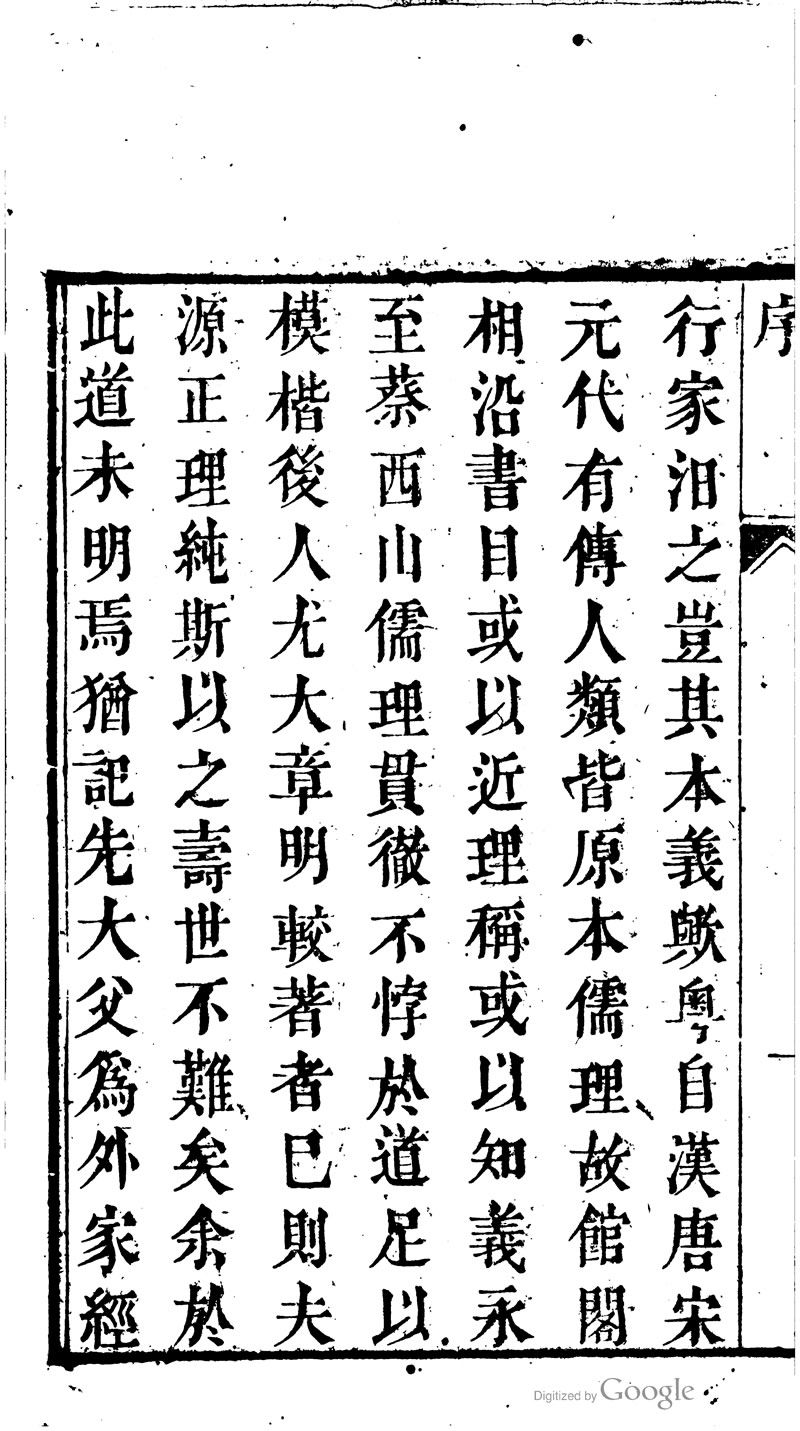 序
行家汨之豈其本義歟粤自漢唐宋
元代有傳人類皆原本儒理故館閣
相沿書目或以近理稱或以知義永
至蔡西山儒理貫徹不悖於道足以
模楷後人尤大章明較著者巳則夫
源正理純斯以之壽世不難矣余於
此道未明焉猶記先大父爲外家經
Digitized by Google